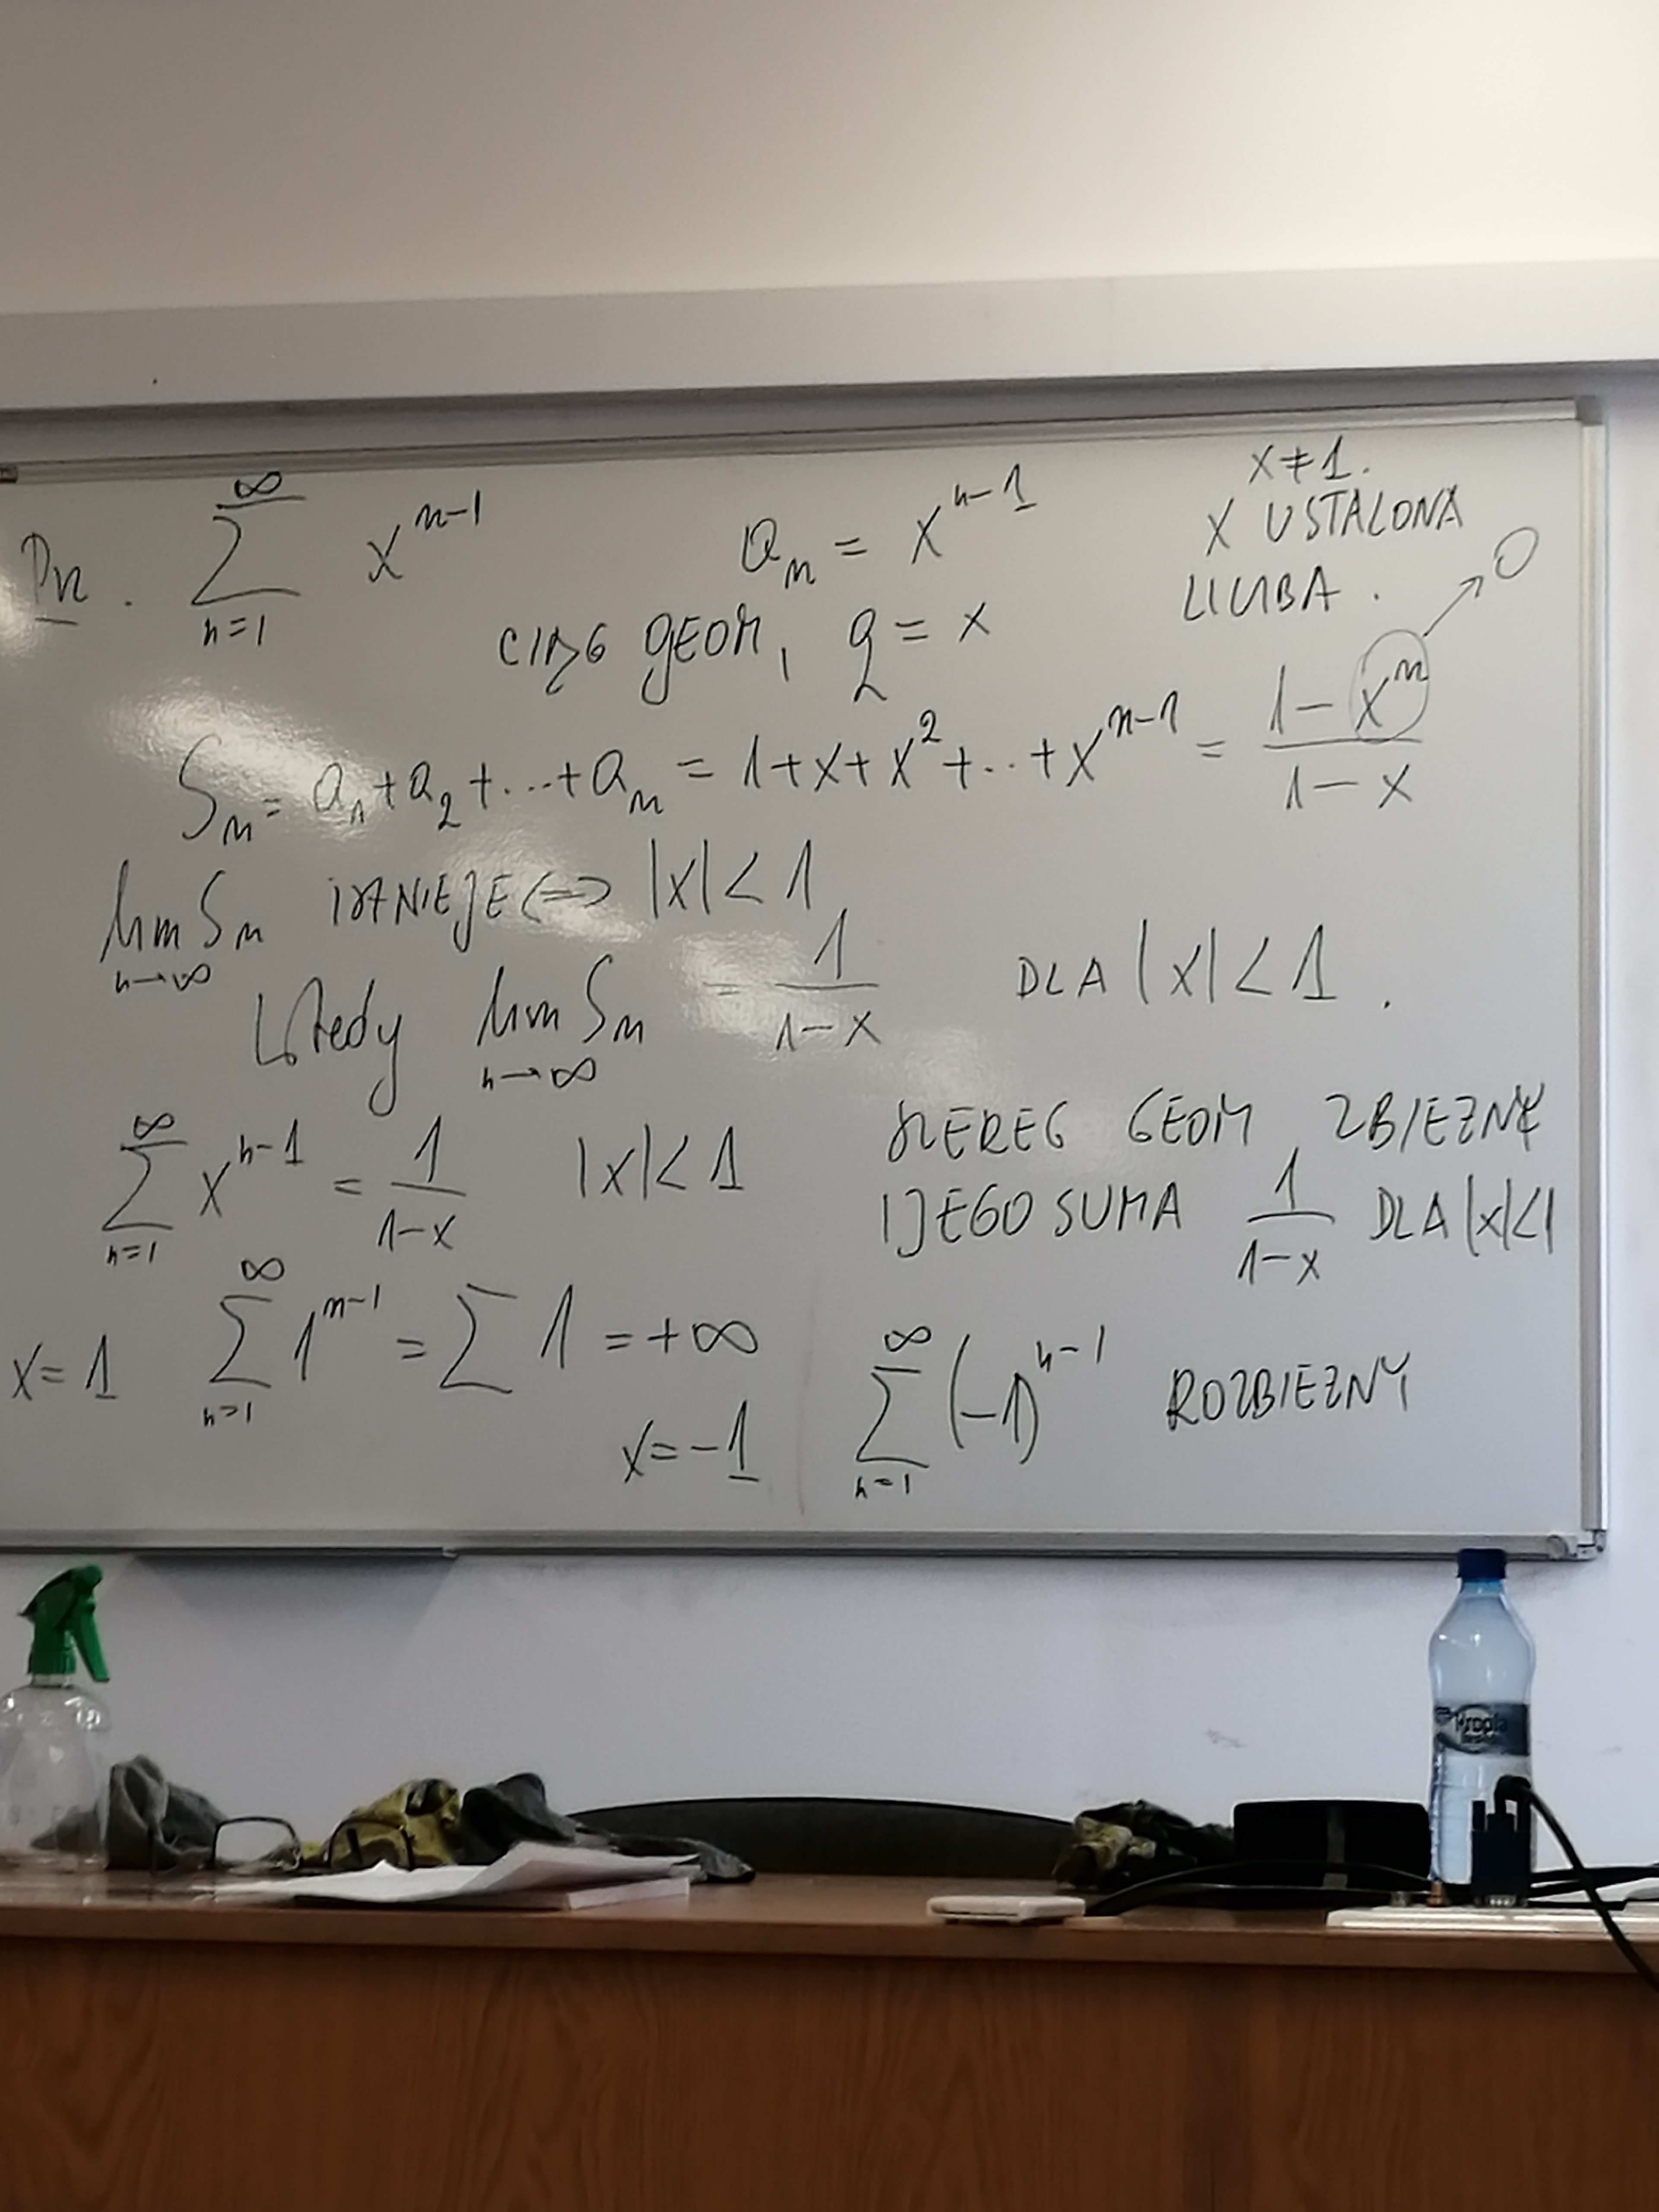 Pn. ∑_{n=1}^{∞} x^{n-1} a_n = x^{n-1} x ≠ 1.
x USTALONA
LICZBA. 0
CIĄG GEOM, q = x
S_n = a_1 + a_2 + ... + a_n = 1 + x + x^2 + ... + x^{n-1} = \frac{1 - x^n}{1 - x}
lim_{n→∞} S_n ISTNIEJE <=> |x| < 1
Wtedy lim_{n→∞} S_n = \frac{1}{1-x} DLA |x| < 1.
∑_{n=1}^{∞} x^{n-1} = \frac{1}{1-x} |x| < 1
SZEREG GEOM ZBIEZNY
I JEGO SUMA \frac{1}{1-x} DLA |x| < 1
x = 1 ∑_{n=1}^{∞} 1^{n-1} = ∑ 1 = +∞
x = -1 ∑_{n=1}^{∞} (-1)^{n-1} ROZBIEZNY
Kropla